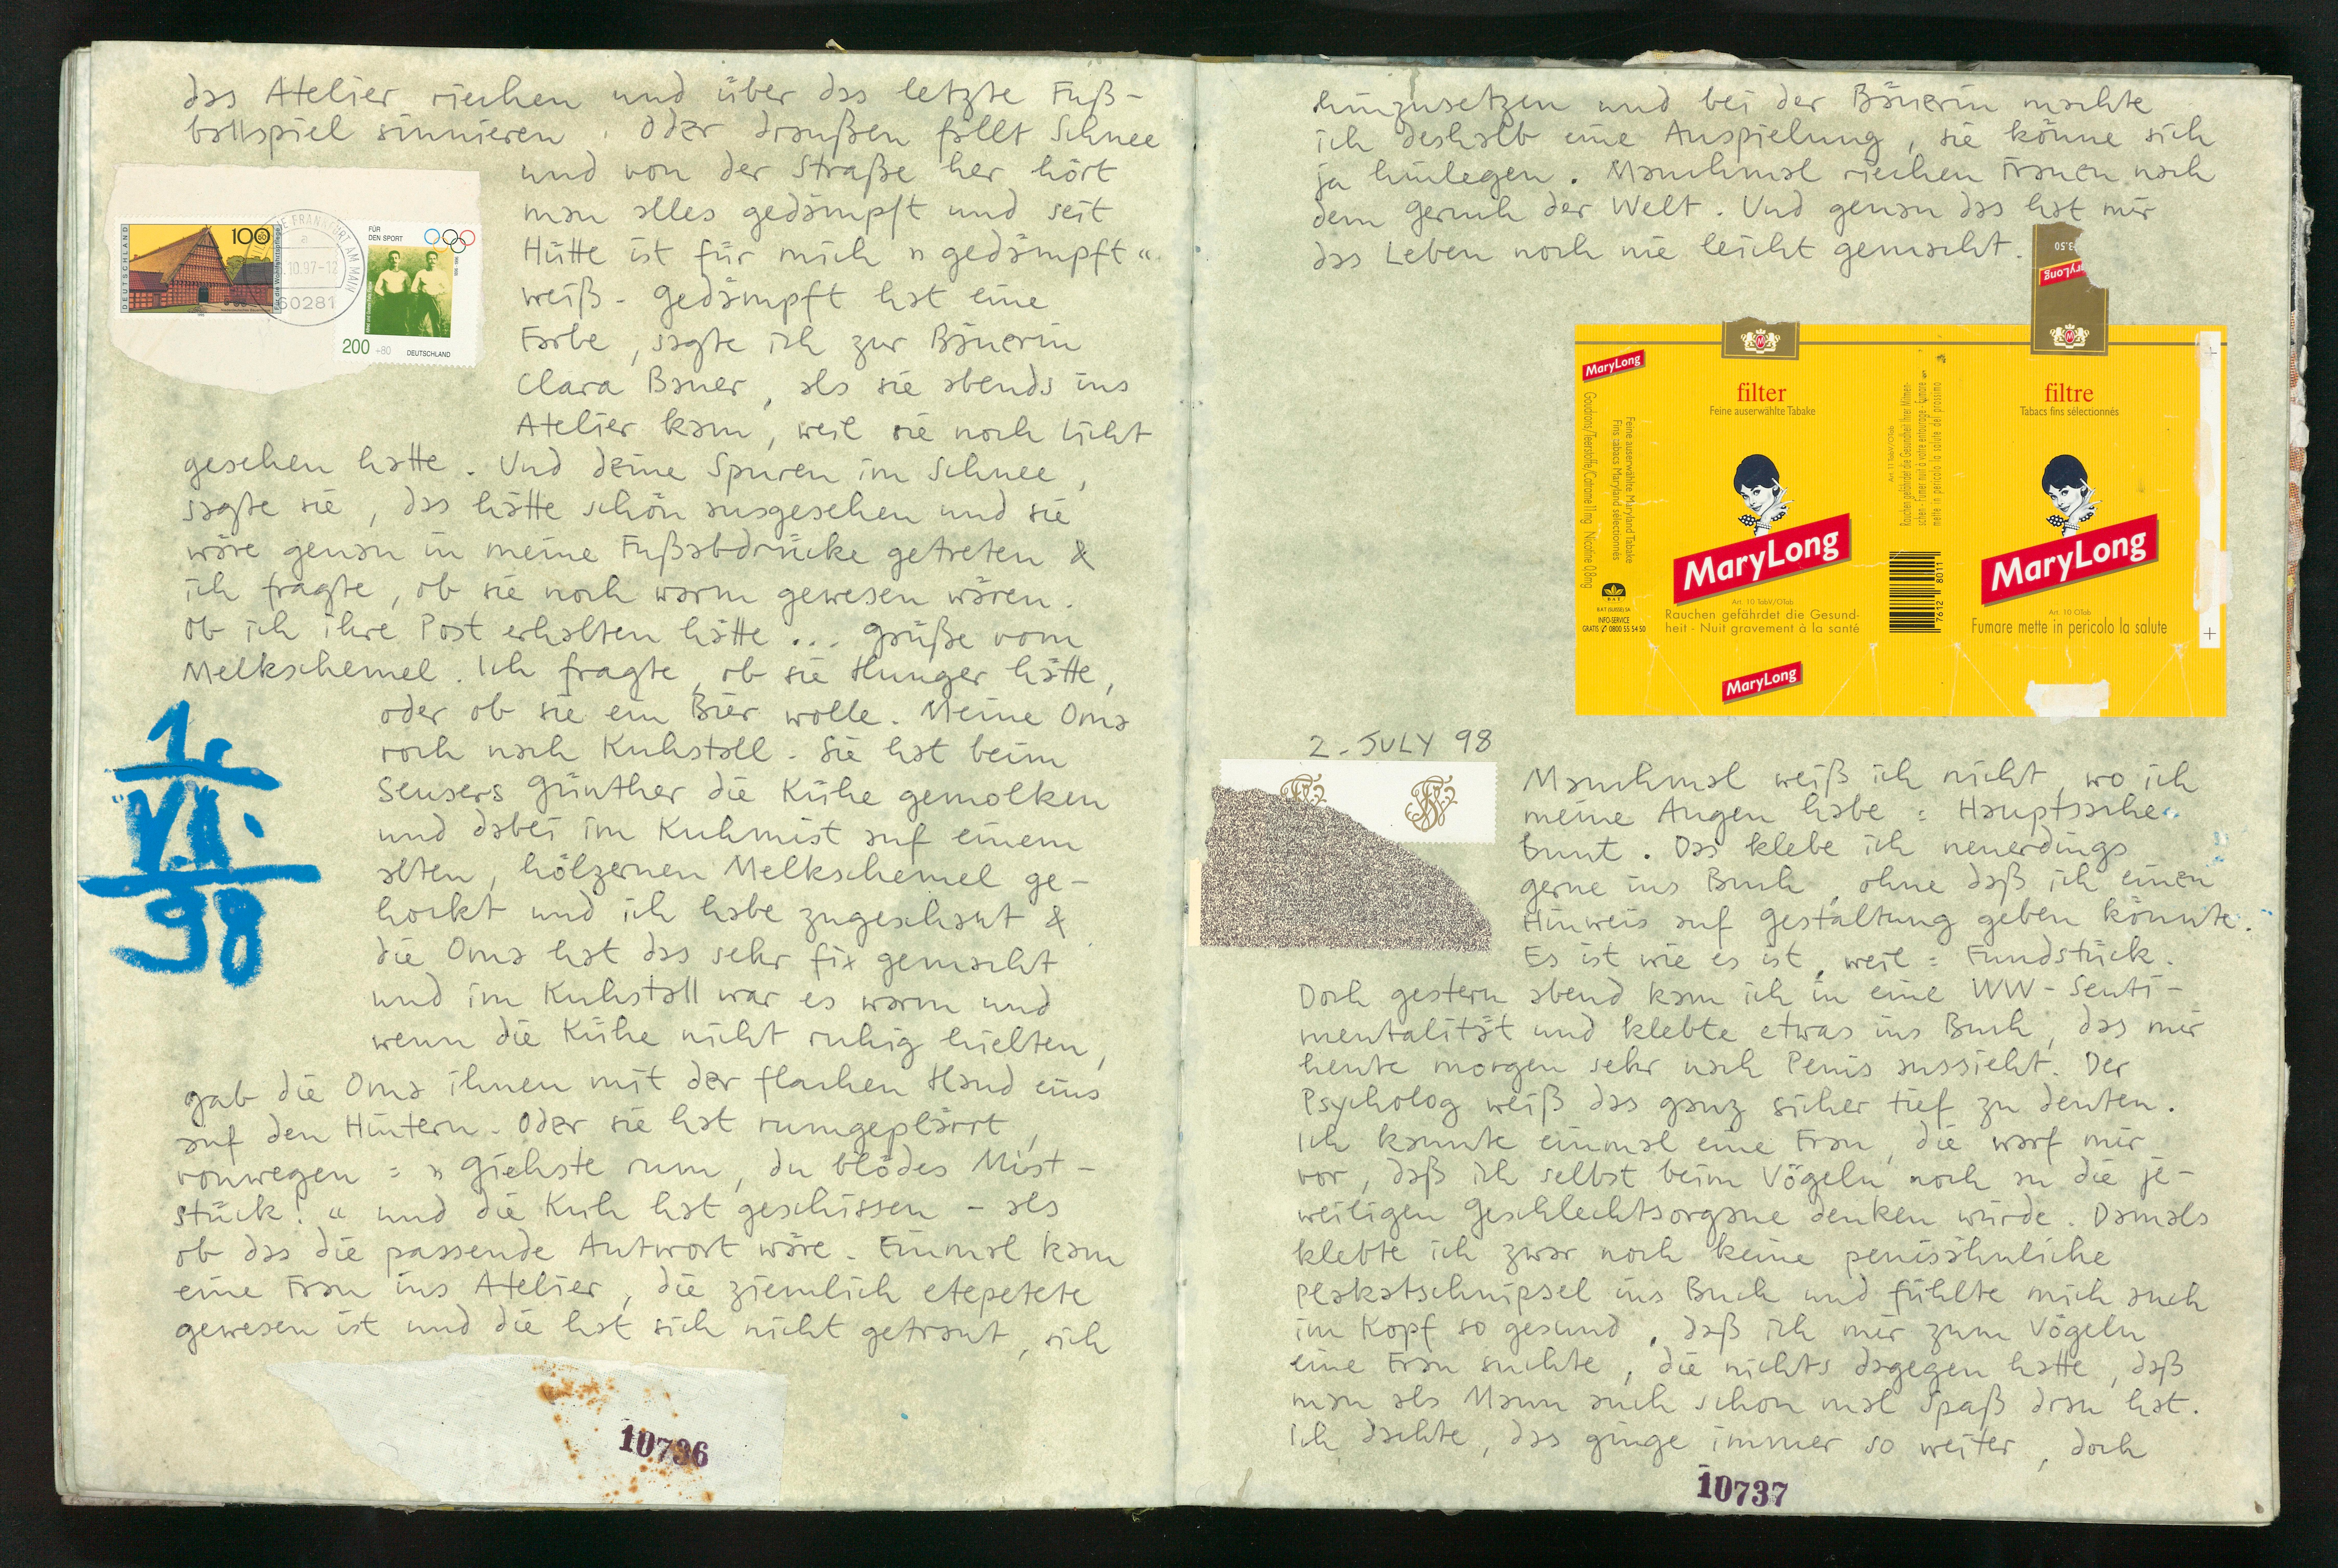 das Atelier riechen und über das letzte Fuß-
ballspiel sinnieren. Oder draußen fällt Schnee
und von der Straße her hört
man alles gedämpft und seit
Hütte ist für mich »gedämpft«
weiß - gedämpft hat eine
Farbe, sagte ich zur Bäuerin
Clara Bauer, als sie abends ins
Atelier kam, weil sie noch Licht
gesehen hatte. Und deine Spuren im Schnee,
sagte sie, das hätte schön ausgesehen und sie
wäre genau in meine Fußabdrücke getreten &
ich fragte, ob sie noch warm gewesen wären.
Ob ich ihre Post erhalten hätte ... Grüße vom
Melkschemel. Ich fragte, ob sie Hunger hätte,
oder ob sie ein Bier wolle. Meine Oma
roch nach Kuhstall. Sie hat beim
Sensers Günther die Kühe gemolken
und dabei im Kuhmist auf einem
alten, hölzernen Melkschemel ge-
hockt und ich habe zugeschaut &
die Oma hat das sehr fix gemacht
und im Kuhstall war es warm und
wenn die Kühe nicht ruhig hielten,
gab die Oma ihnen mit der flachen Hand eins
auf den Hintern. Oder sie hat rumgeplärrt,
vonwegen = »Giehste rum, du blödes Mist-
stück!« und die Kuh hat geschissen - als
ob das die passende Antwort wäre. Einmal kam
eine Frau ins Atelier, die ziemlich etepetete
gewesen ist und die hat sich nicht getraut, sich
DEUTSCHLAND
100
50
Für die Wohlfahrtspflege
FRANKFURT AM MAIN
.10.97-12
60281
FÜR
DEN SPORT
200 +80 DEUTSCHLAND
1.
VII.
98
10736
hinzusetzen und bei der Bäuerin machte
ich deshalb eine Anspielung, sie könne sich
ja hinlegen. Manchmal riechen Frauen nach
dem Geruch der Welt. Und genau das hat mir
das Leben noch nie leicht gemacht.
3.50
MaryLong
MaryLong
filter
Feine auserwählte Tabake
MaryLong
Art. 10 TabV/OTab
Rauchen gefährdet die Gesund-
heit - Nuit gravement à la santé
MaryLong
Goudrons/Teerstoffe/Catrame 11mg Nicotine 0,8mg
Feine auserwählte Maryland Tabake
Fins tabacs Maryland sélectionnés
BAT
B·A·T (SUISSE) SA
INFO-SERVICE
GRATIS 0800 55 54 50
Art. 11 TabV/OTab
Rauchen gefährdet die Gesundheit Ihrer Mitmen-
schen - Fumer nuit à votre entourage - Fumare
mette in pericolo la salute del prossimo
7612 8011
filtre
Tabacs fins sélectionnés
MaryLong
Art. 10 OTab
Fumare mette in pericolo la salute
2. JULY 98
Manchmal weiß ich nicht, wo ich
meine Augen habe = Hauptsache
bunt. Das klebe ich neuerdings
gerne ins Buch, ohne daß ich einen
Hinweis auf Gestaltung geben könnte.
Es ist wie es ist, weil = Fundstück.
Doch gestern abend kam ich in eine WW-Senti-
mentalität und klebte etwas ins Buch, das mir
heute morgen sehr nach Penis aussieht. Der
Psycholog weiß das ganz sicher tief zu deuten.
Ich kannte einmal eine Frau, die warf mir
vor, daß ich selbst beim Vögeln noch an die je-
weiligen Geschlechtsorgane denken würde. Damals
klebte ich zwar noch keine penisähnliche
Plakatschnipsel ins Buch und fühlte mich auch
im Kopf so gesund, daß ich mir zum Vögeln
eine Frau suchte, die nichts dagegen hatte, daß
man als Mann auch schon mal Spaß dran hat.
Ich dachte, das ginge immer so weiter, doch
10737